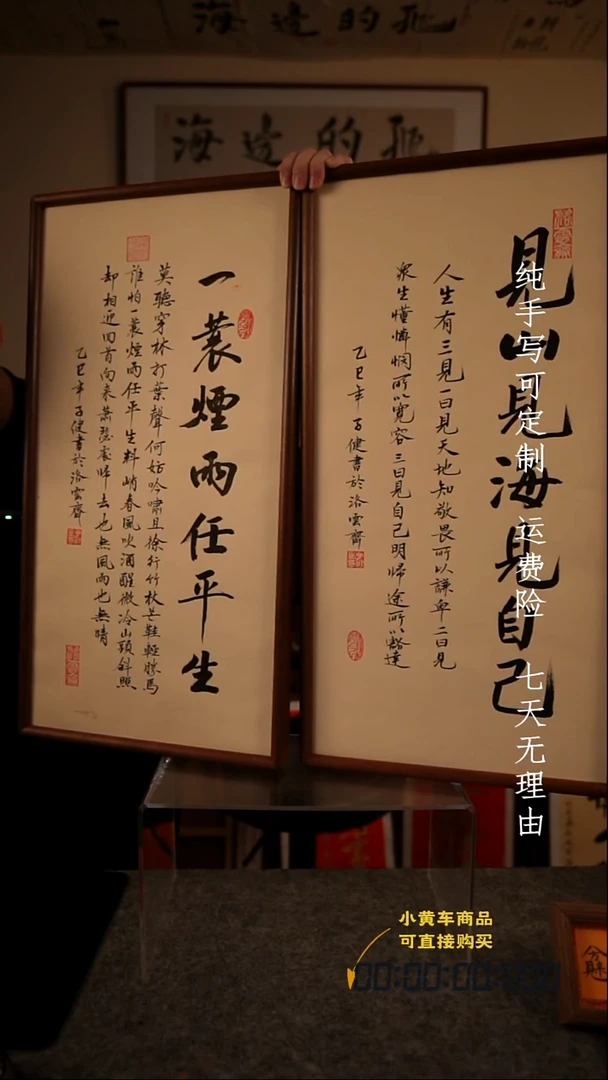 見山見海見自己
人生有三見一曰見天地知敬畏所以謙卑二曰見
衆生懂憐憫所以寬容三曰見自己明歸途所以豁達
乙巳年子健書於洛雲齋
一蓑煙雨任平生
莫聽穿林打葉聲何妨吟嘯且徐行竹杖芒鞋輕勝馬
誰怕一蓑煙雨任平生料峭春風吹酒醒微冷山頭斜照
却相迎回首向來蕭瑟處歸去也無風雨也無晴
乙巳年子健書於洛雲齋
纯手写可定制 运费险 七天无理由
小黄车商品
可直接购买